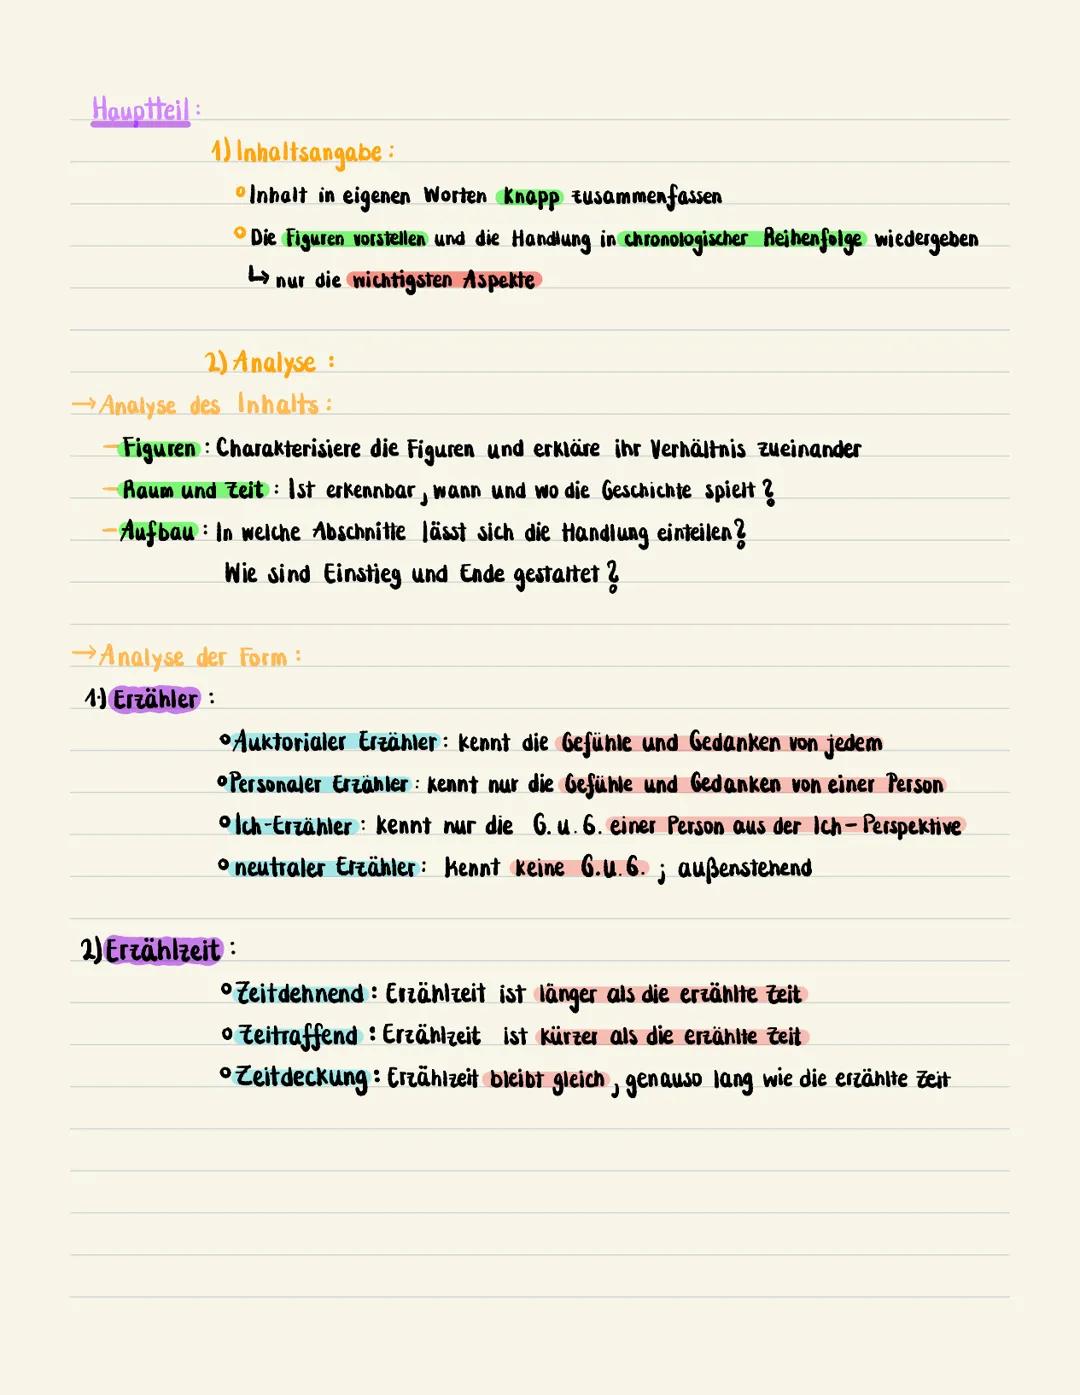 Hauptteil:
1) Inhaltsangabe:
° Inhalt in eigenen Worten knapp zusammenfassen
° Die Figuren vorstellen und die Handlung in chronologischer Reihenfolge wiedergeben
↳ nur die wichtigsten Aspekte
2) Analyse:
→ Analyse des Inhalts:
– Figuren: Charakterisiere die Figuren und erkläre ihr Verhältnis zueinander
– Raum und Zeit: Ist erkennbar, wann und wo die Geschichte spielt?
– Aufbau: In welche Abschnitte lässt sich die Handlung einteilen?
Wie sind Einstieg und Ende gestaltet?
→ Analyse der Form:
1.) Erzähler:
° Auktorialer Erzähler: kennt die Gefühle und Gedanken von jedem
° Personaler Erzähler: kennt nur die Gefühle und Gedanken von einer Person
° Ich-Erzähler: kennt nur die G.u.G. einer Person aus der Ich-Perspektive
° neutraler Erzähler: kennt keine G.u.G.; außenstehend
2) Erzählzeit:
° Zeitdehnend: Erzählzeit ist länger als die erzählte Zeit
° Zeitraffend: Erzählzeit ist kürzer als die erzählte Zeit
° Zeitdeckung: Erzählzeit bleibt gleich, genauso lang wie die erzählte Zeit